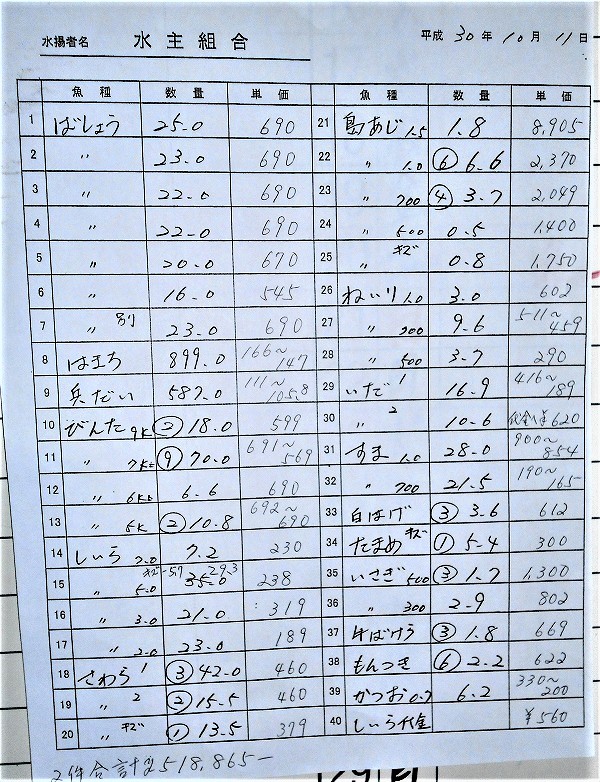 水揚者名 水主組合 平成 30年 10月 11日
魚種 数量 単価 魚種 数量 単価
1 ばしょう 25.0 690
2 〃 23.0 690
3 〃 22.0 690
4 〃 22.0 690
5 〃 20.0 670
6 〃 16.0 545
7 〃 別 23.0 690
8 はまち 899.0 166~147
9 兵だい 587.0 111~105.8
10 びんた 9K ② 18.0 599
11 〃 7K上 ⑨ 70.0 691~569
12 〃 6K上 6.6 690
13 〃 5K ② 10.8 692~690
14 しいら 7.0 7.2 230
15 〃 5.0 35.0 キズ-5.7 29.3 238
16 〃 3.0 21.0 319
17 〃 2.0 23.0 189
18 さわら 1 ③ 42.0 460
19 〃 2 ② 15.5 460
20 〃 キズ ① 13.5 379
21 島あじ 1.5 1.8 8,905
22 〃 1.0 ⑥ 6.6 2,370
23 〃 700 ④ 3.7 2,049
24 〃 500 0.5 1,400
25 〃 キズ 0.8 1,750
26 ねいり 1.0 3.0 602
27 〃 700 9.6 511~459
28 〃 500 3.7 290
29 いだ 1 16.9 416~189
30 〃 2 10.6 代金¥620
31 すま 1.0 28.0 900~854
32 〃 700 21.5 190~165
33 白はげ ③ 3.6 612
34 たまめ キズ ① 5.4 300
35 いさぎ 500 ③ 1.7 1,300
36 〃 300 2.9 802
37 牛ばけう ③ 1.8 669
38 もんつき ⑥ 2.2 622
39 かつお 0.7 6.2 330~200
40 しいら代金 ¥560
2件合計¥518,865-